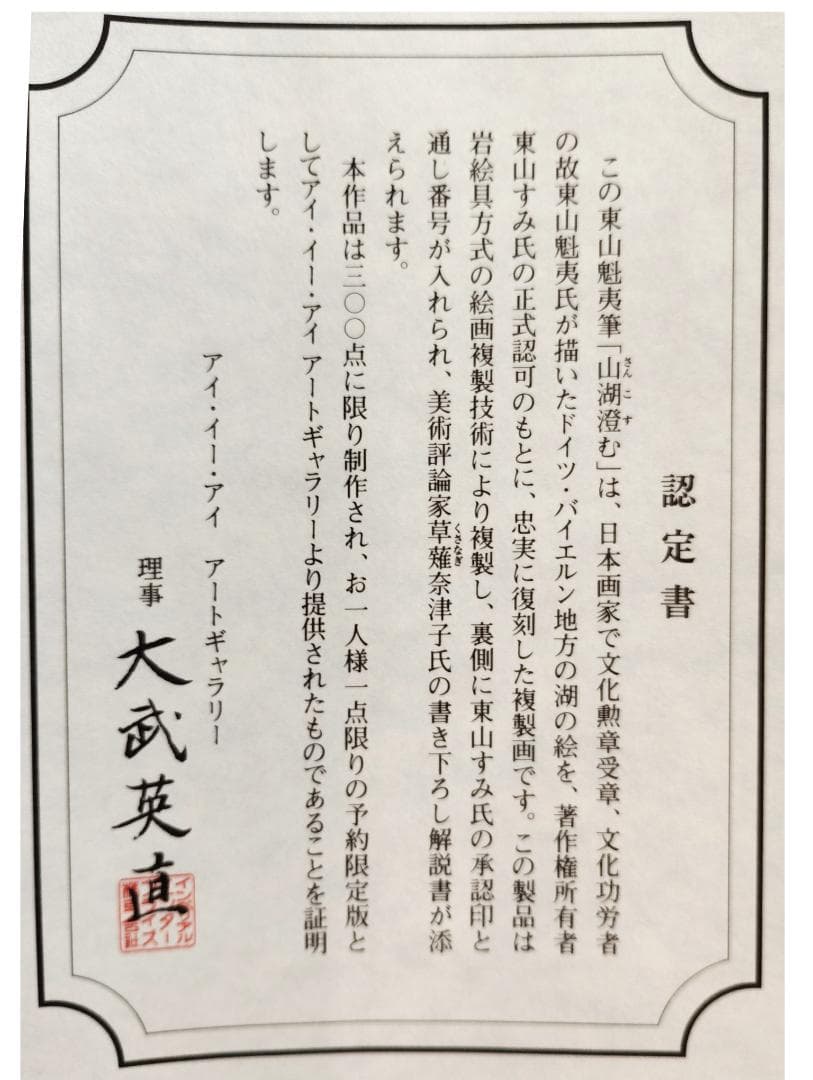 認定書
この東山魁夷筆「山湖澄む」は、日本画家で文化勲章受章、文化功労者
さんこす
の故東山魁夷氏が描いたドイツ・バイエルン地方の湖の絵を、著作権所有者
東山すみ氏の正式認可のもとに、忠実に復刻した複製画です。この製品は
岩絵具方式の絵画複製技術により複製し、裏側に東山すみ氏の承認印と
通し番号が入れられ、美術評論家草薙奈津子氏の書き下ろし解説書が添
くさなぎ
えられます。
本作品は三〇〇点に限り制作され、お一人様一点限りの予約限定版と
してアイ・イー・アイ アートギャラリーより提供されたものであることを証明
します。
アイ・イー・アイ アートギャラリー
理事 大武英直